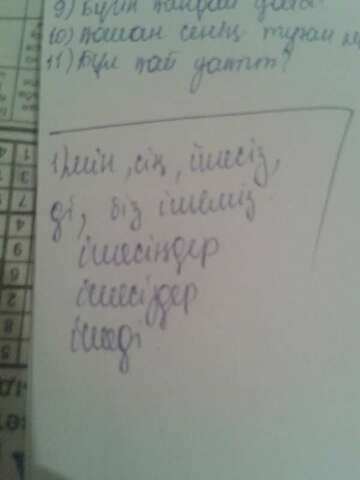 9) Бүгін қандай
10) қашан сенің туған
11) Бұл қай уақыт?
1) мін, сің, ішесіз,
ді, біз ішеміз
ішесіңдер
ішесіздер
ішеді